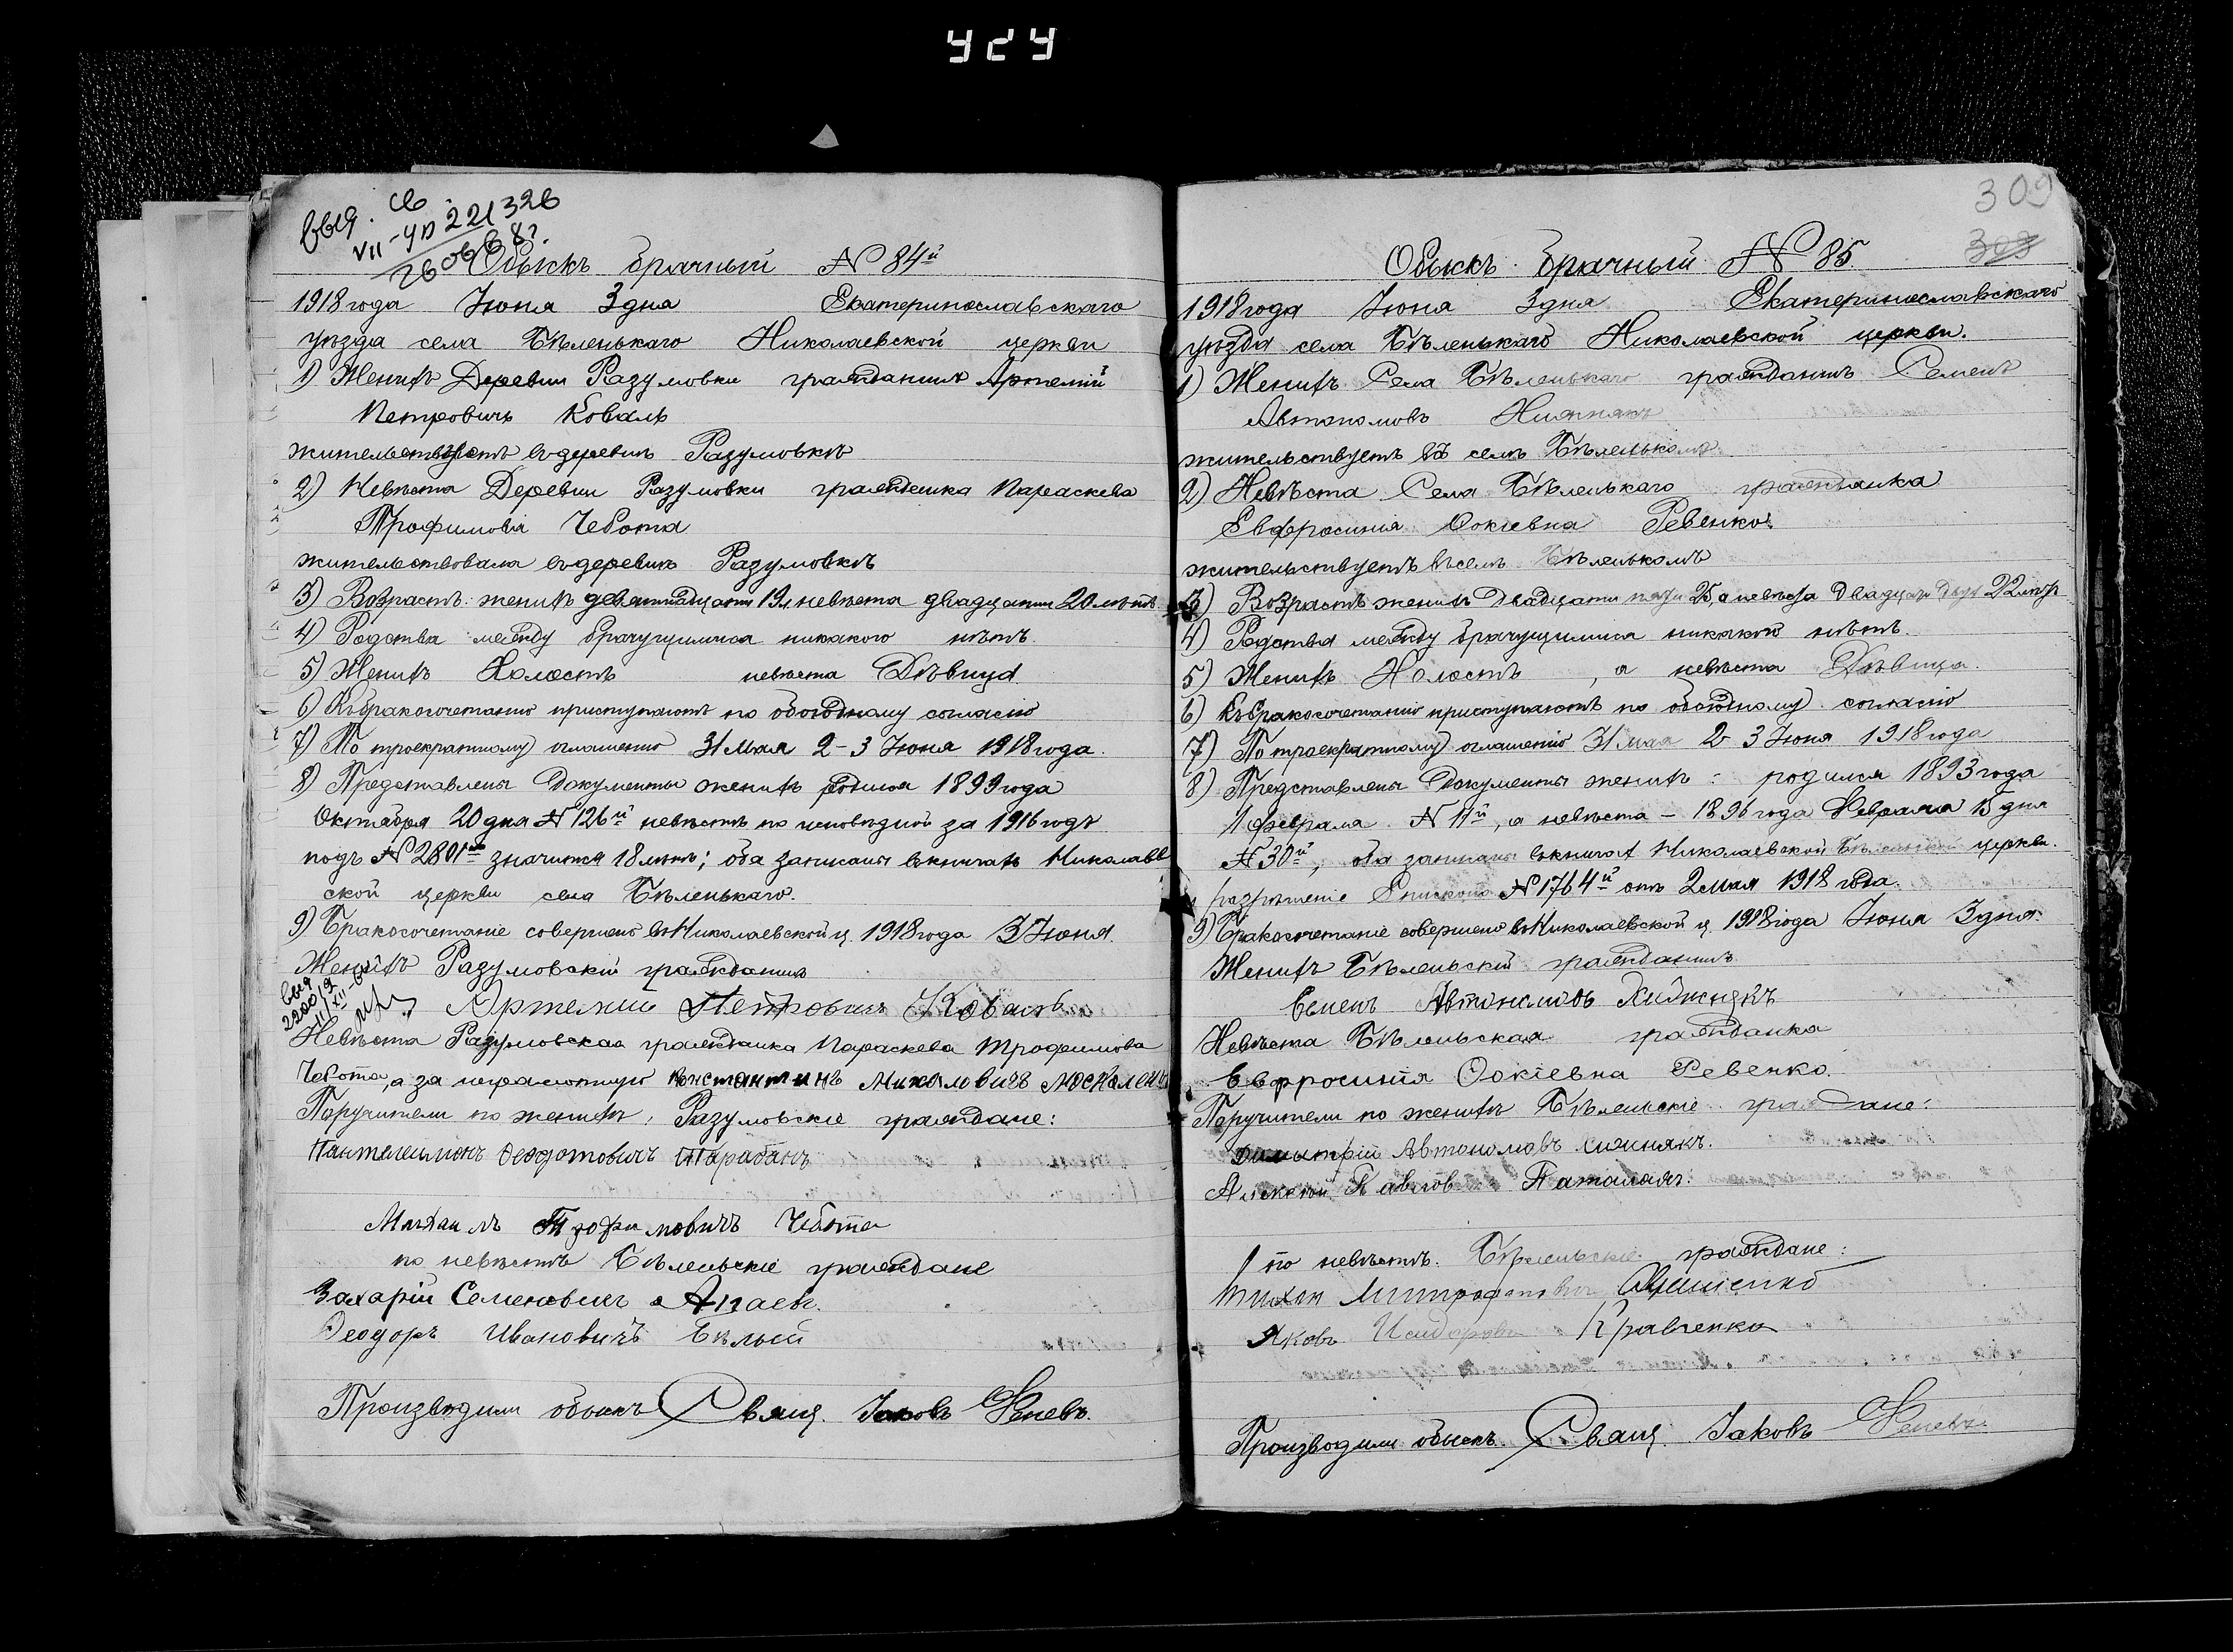 424
выд. св.
VII-ЯП 221326
26 06 68 г.
Обыскъ брачный № 84й
1918 года Iюня 3 дня Екатеринославскаго
уѣзда села Бѣленькаго Николаевской церкви
1) Женихъ Деревни Разумовки гражданинъ Артемiй
Петровичъ Коваль
жительствуетъ въ деревнѣ Разумовкѣ
2) Невѣста Деревни Разумовки гражданка Параскева
Трофимова Чебота
жительствовала въ деревнѣ Разумовкѣ
3) Возрастъ: женихъ девятнадцати 19 л невѣста двадцати 20 лѣтъ
4) Родства между брачущимися никакого нѣтъ.
5) Женихъ Холостъ невѣста Дѣвица
6) Къ бракосочетанiю приступаютъ по обоюдному согласiю
7) По троекратному оглашенiю 31 Мая 2-3 Iюня 1918 года.
8) Представлены документы женихъ родился 1899 года
Октября 20 дня № 126й невѣста по исповѣдной за 1916 годъ
подъ № 2801 значится 18 лѣтъ; оба записаны въ книгахъ Николаев
ской церкви села Бѣленькаго.
9) Бракосочетанiе совершено въ Николаевской ц. 1918 года 3 Iюня.
Женихъ Разумовскiй гражданинъ
Артемий Петровичъ Коваль
Невѣста Разумовская гражданка Параскева Трофимова
Чебота, а за неграмотную Константинъ Михаловичъ Москаленко
Поручители по женихѣ, Разумовскiе граждане:
Пантелеимонъ Феодотовичъ Тарабанъ
Михаилъ Трофимовичъ Чебота
по невѣстѣ Бѣленьскiе граждане
Захарiй Семеновичъ
Феодоръ Ивановичъ Бѣлый
Производили обыскъ Свящ. Iаковъ Феневъ.
309
303
Обыскъ брачный № 85
1918 года Iюня 3 дня Екатеринославскаго
уѣзда села Бѣленькаго Николаевской церкви.
1) Женихъ Села Бѣленькаго гражданинъ Семенъ
Автономовъ Хижнякъ
жительствуетъ въ селѣ Бѣленькомъ.
2) Невѣста Села Бѣленькаго гражданка
Евфросинiя Фокiевна Ревенко.
жительствуетъ въ селѣ Бѣленькомъ
3) Возрастъ женихъ Двадцати пяти 25, а невѣста Двадцати двух 22 лѣтъ
4) Родства между брачущимися никакого нѣтъ.
5) Женихъ Холостъ, а невѣста Дѣвица.
6) Къ бракосочетанiю приступаютъ по обоюдному согласiю
7) По троекратному оглашенiю 31 мая 2 3 Iюня 1918 года
8) Представлены документы женихъ: родился 1893 года
1 февраля № 11й, а невѣста - 1896 года Февраля 15 дня
№ 30й, оба записаны въ книгахъ Николаевской Бѣленьской церкви.
разрѣшенiе Епископа № 1764й отъ 2 мая 1918 года.
9) Бракосочетанiе совершено въ Николаевской ц. 1918 года Iюня 3 дня.
Женихъ Бѣленьскiй гражданинъ
Семенъ Автономовъ Хижнякъ
Невѣста Бѣленьская гражданка
Евфросинiя Фокiевна Ревенко.
Поручители по женихѣ Бѣленьскiе граждане:
Димитрiй Автономовъ Хижнякъ.
Алексѣй Павловъ
по невѣстѣ. Бѣленьскiе граждане:
Тихон Митрофановичъ
Яковъ Исидоровъ Кравченко
Производили обыскъ. Свящ. Iаковъ Феневъ.